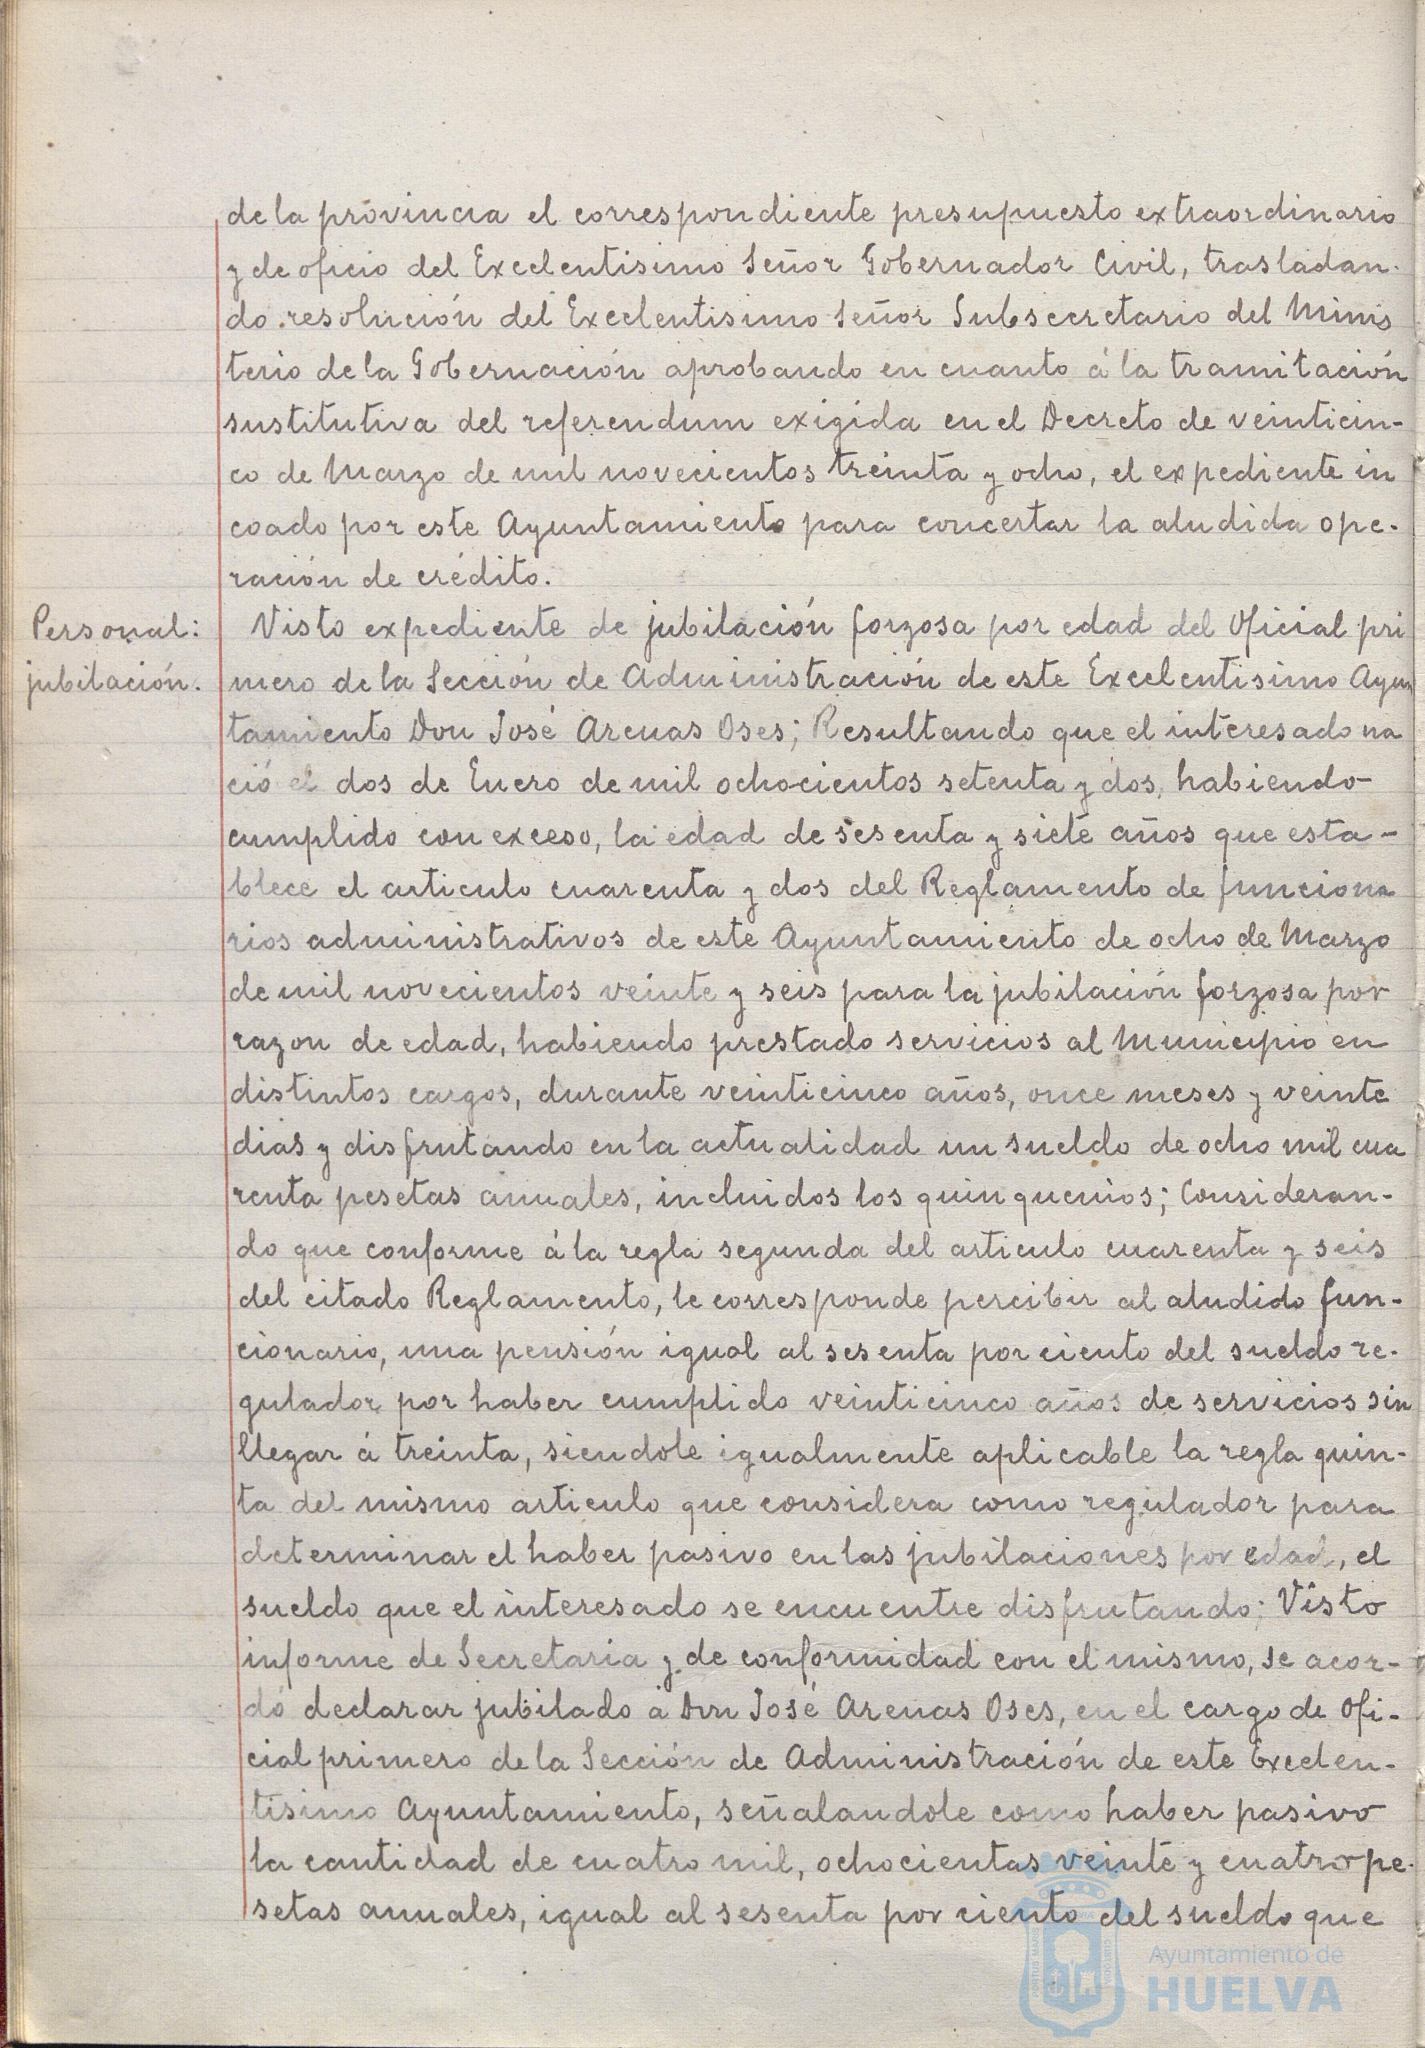 de la provincia el correspondiente presupuesto extraordinario
y de oficio del Excelentisimo Señor Gobernador Civil, trasladan-
do resolución del Excelentisimo Señor Subsecretario del Minis
terio de la Gobernación aprobando en cuanto á la tramitación
sustitutiva del referendum exigida en el Decreto de veinticin-
co de Marzo de mil novecientos treinta y ocho, el expediente in
coado por este Ayuntamiento para concertar la aludida ope-
ración de crédito.
Personal:
jubilación.
Visto expediente de jubilación forzosa por edad del Oficial pri
mero de la Sección de Administración de este Excelentisimo Ayun
tamiento Don José Arenas Oses; Resultando que el interesado na
ció el dos de Enero de mil ochocientos setenta y dos, habiendo
cumplido con exceso, la edad de sesenta y siete años que esta-
blece el articulo cuarenta y dos del Reglamento de funciona
rios administrativos de este Ayuntamiento de ocho de Marzo
de mil novecientos veinte y seis para la jubilación forzosa por
razon de edad, habiendo prestado servicios al Municipio en
distintos cargos, durante veinticinco años, once meses y veinte
dias y disfrutando en la actualidad un sueldo de ocho mil cua
renta pesetas anuales, incluidos los quinquenios; Consideran-
do que conforme á la regla segunda del articulo cuarenta y seis
del citado Reglamento, le corresponde percibir al aludido fun-
cionario, una pensión igual al sesenta por ciento del sueldo re-
gulador por haber cumplido veinticinco años de servicios sin
llegar á treinta, siendole igualmente aplicable la regla quin-
ta del mismo articulo que considera como regulador para
determinar el haber pasivo en las jubilaciones por edad, el
sueldo que el interesado se encuentre disfrutando; Visto
informe de Secretaria y de conformidad con el mismo, se acor-
dó declarar jubilado a Don José Arenas Oses, en el cargo de Ofi-
cial primero de la Sección de Administración de este Excelen-
tisimo Ayuntamiento, señalandole como haber pasivo
la cantidad de cuatro mil, ochocientas veinte y cuatro pe-
setas anuales, igual al sesenta por ciento del sueldo que
Ayuntamiento de
HUELVA